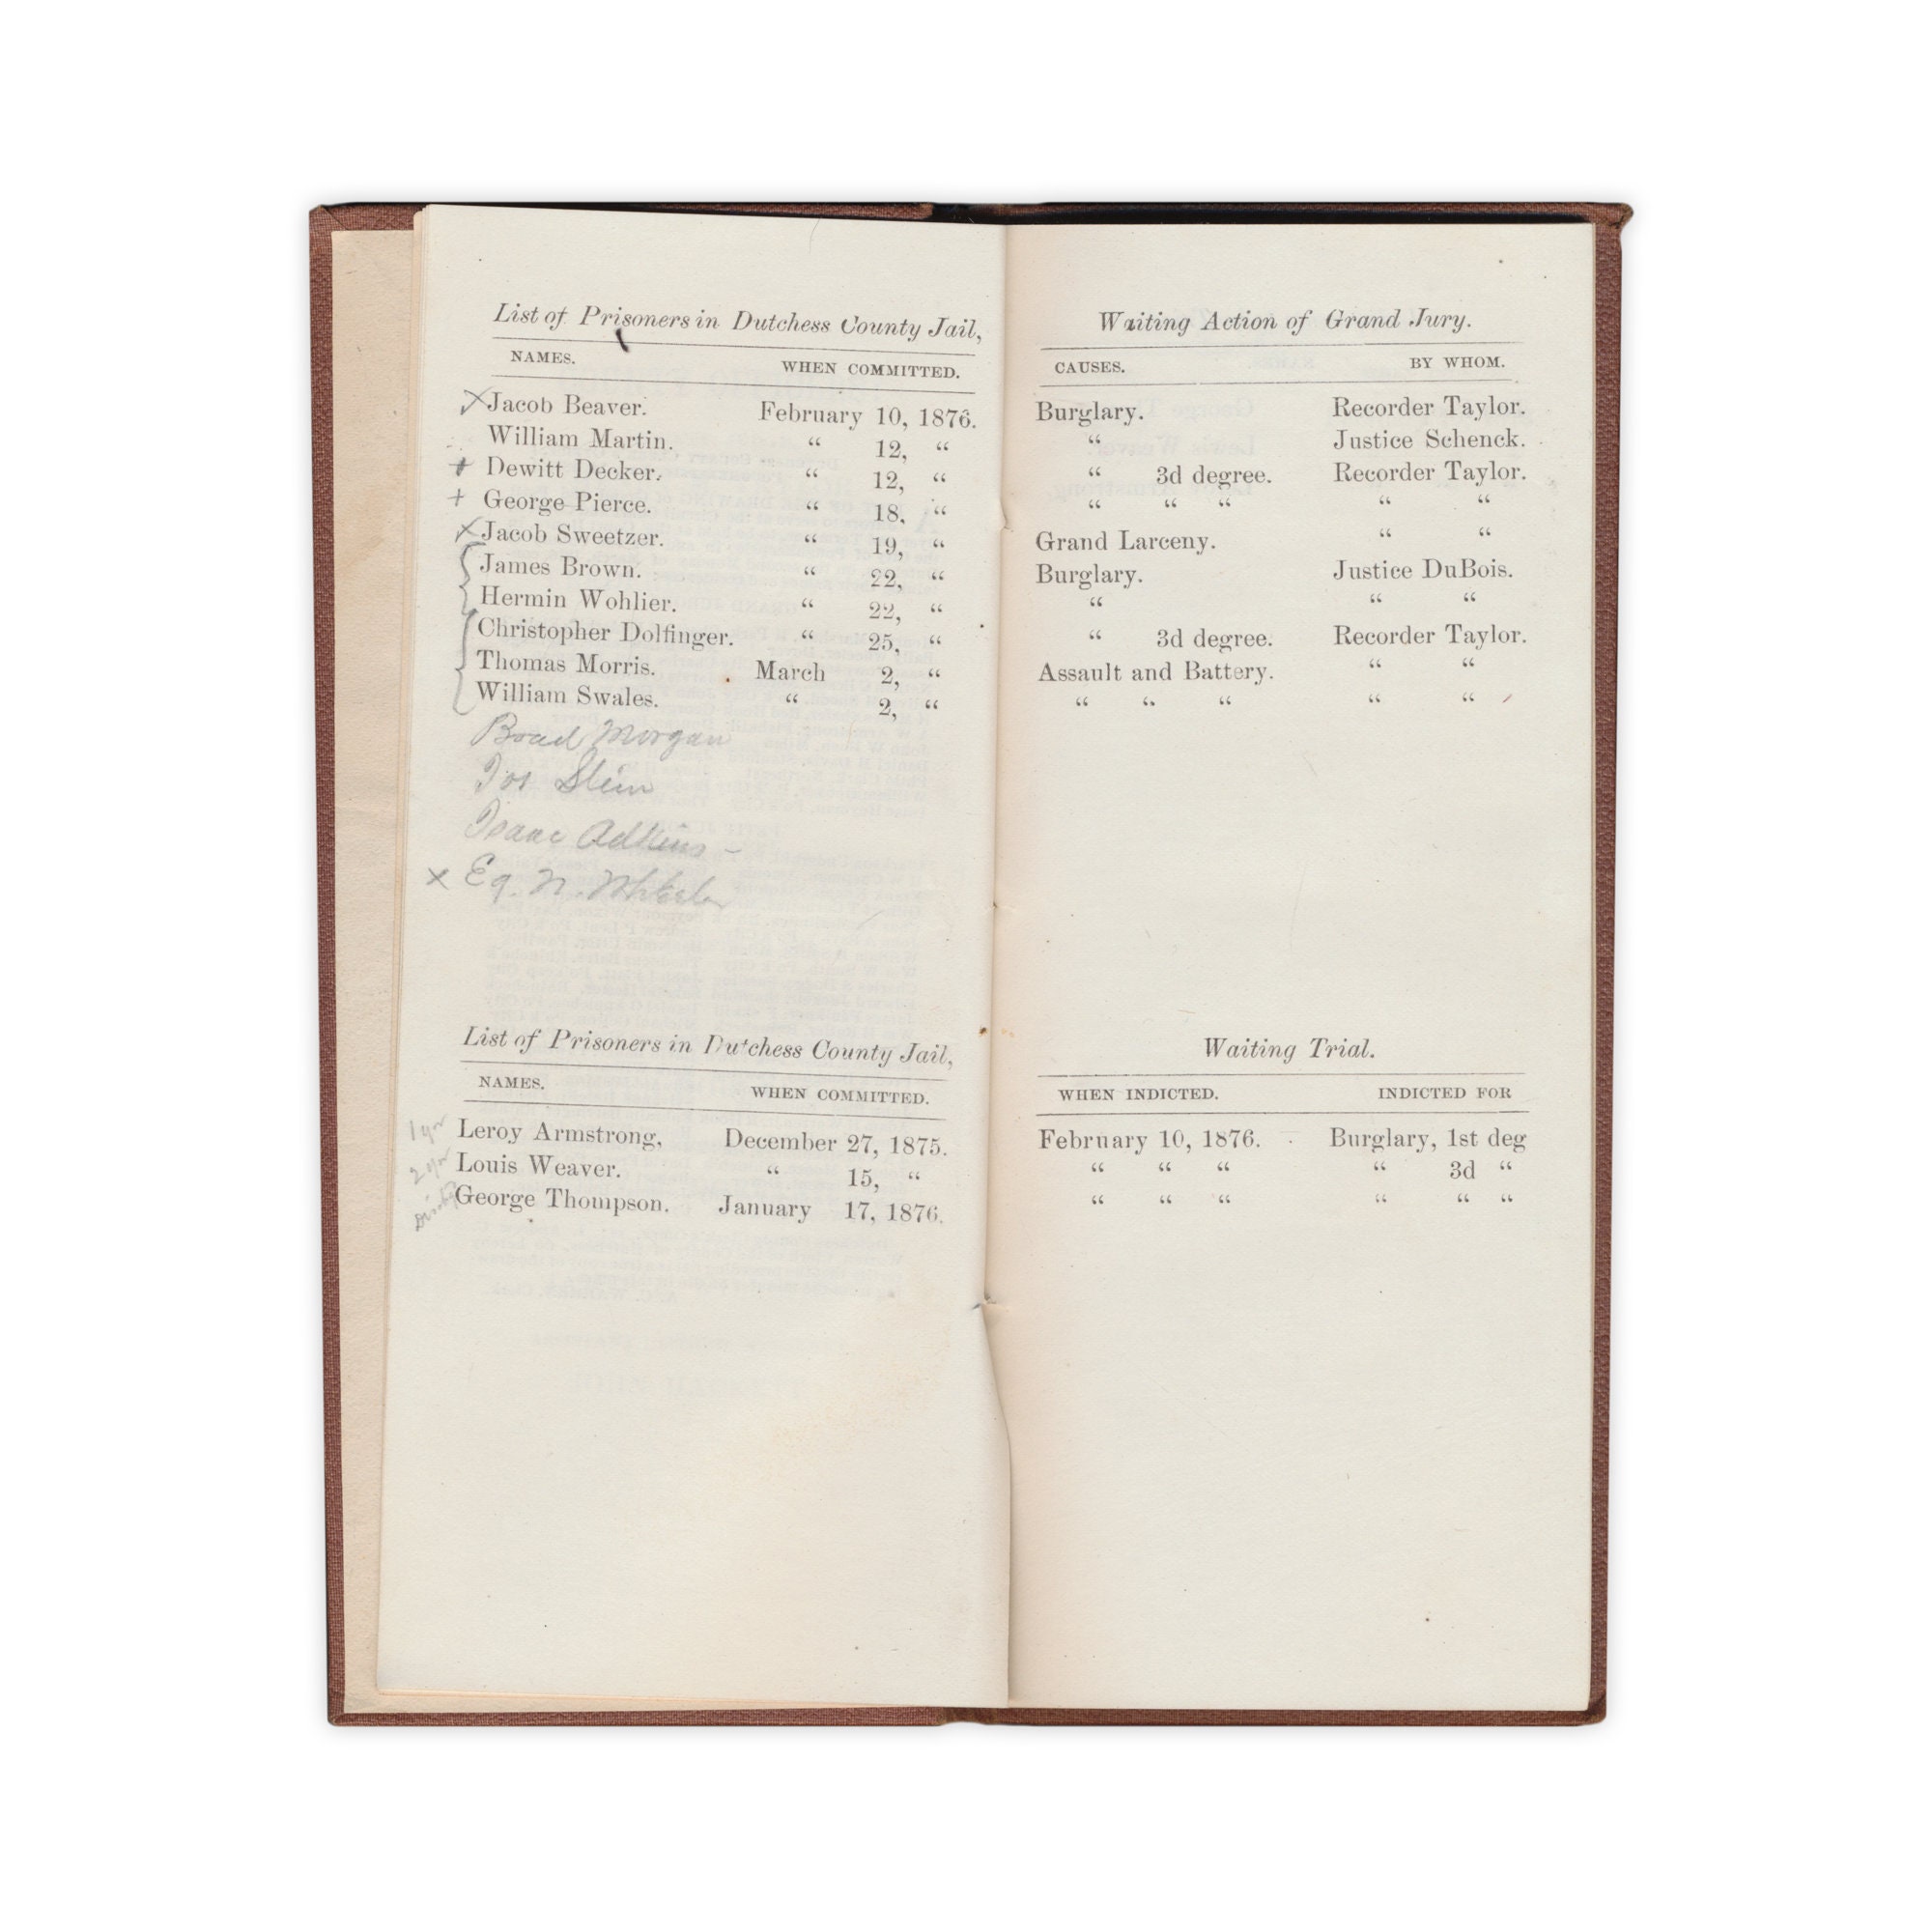 List of Prisoners in Dutchess County Jail,
NAMES. WHEN COMMITTED.
Jacob Beaver. February 10, 1876.
William Martin. “ 12, “
Dewitt Decker. “ 12, “
George Pierce. “ 18, “
Jacob Sweetzer. “ 19, “
James Brown. “ 22, “
Hermin Wohlier. “ 22, “
Christopher Dolfinger. “ 25, “
Thomas Morris. March 2, “
William Swales. “ 2, “
Morgan
Jos Stein
Isaac Adkins -
x
List of Prisoners in Dutchess County Jail,
NAMES. WHEN COMMITTED.
1 yr Leroy Armstrong, December 27, 1875.
2 yr Louis Weaver. “ 15, “
George Thompson. January 17, 1876.
Waiting Action of Grand Jury.
CAUSES. BY WHOM.
Burglary. Recorder Taylor.
“ Justice Schenck.
“ 3d degree. Recorder Taylor.
“ “ “ “ “
Grand Larceny. “ “
Burglary. Justice DuBois.
“ “ “
“ 3d degree. Recorder Taylor.
Assault and Battery. “ “
“ “ “ “ “
Waiting Trial.
WHEN INDICTED. INDICTED FOR
February 10, 1876. Burglary, 1st deg
“ “ “ “ 3d “
“ “ “ “ “ “